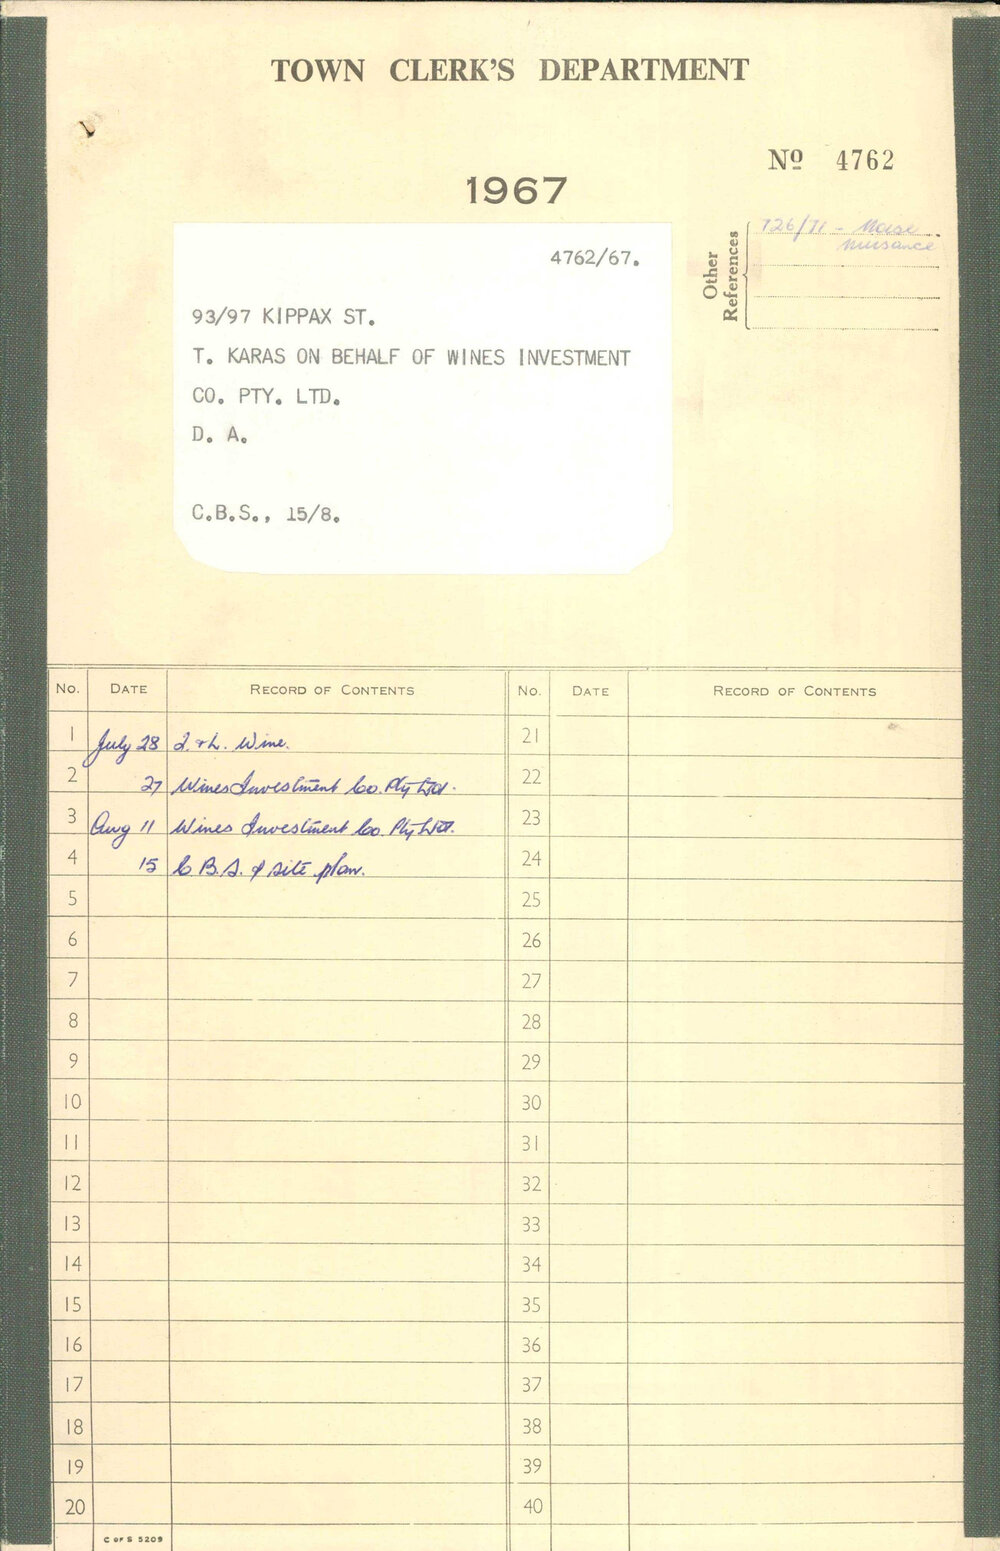 TOWN CLERK'S DEPARTMENT
Nº 4762
1967
Other References
726/71 - Noise
nuisance
4762/67.
93/97 KIPPAX ST.
T. KARAS ON BEHALF OF WINES INVESTMENT
CO. PTY. LTD.
D. A.
C.B.S., 15/8.
No. DATE RECORD OF CONTENTS No. DATE RECORD OF CONTENTS
1 July 28 & L. Wine. 21
2 27 Wines Investment Co. Pty Ltd. 22
3 Aug 11 Wines Investment Co. Pty Ltd. 23
4 15 C B.S. & site plan. 24
5 25
6 26
7 27
8 28
9 29
10 30
11 31
12 32
13 33
14 34
15 35
16 36
17 37
18 38
19 39
20 40
C OF S 5209